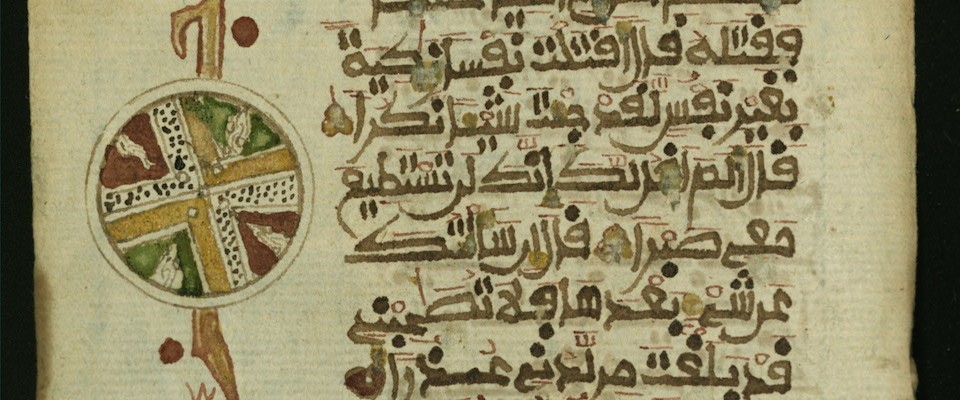 فقتله قال اقتلت نفسا زكية
بغير نفس لقد جئت شيئا نكرا
قال الم اقل لك انك لن تستطيع
معي صبرا قال ان سالتك
عن شيء بعدها فلا تصحبني
قد بلغت من لدني عذرا